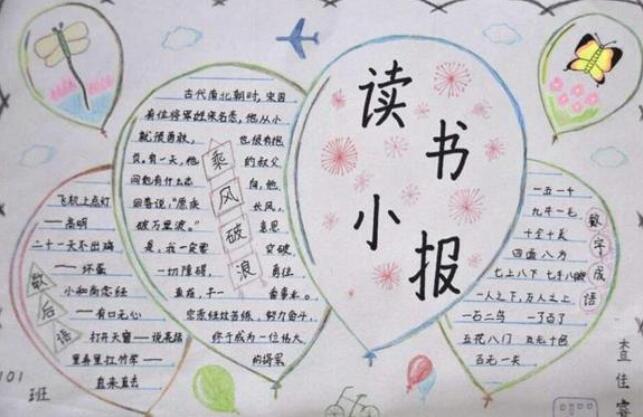 读书
小报
古代南北朝时,宋国
有位将军姓宗名悫,他从小
就很勇敢, 也很有抱
负。有一天,他 的叔父
问他有什么志 向,他
回答说,“愿乘 长风,
破万里浪。” 意思
是,我一定要 突破
一切障碍, 勇往
直前,干一 番事业。
宗悫经过苦练,努力奋斗,
终于成为一位伟大
的将军
乘风破浪
飞机上点灯
——高明
二十一天不出鸡
——坏蛋
小和尚念经
——有口无心
打开天窗——说亮话
里弄里扛竹竿——
直来直去
歇后语
一五一十
九牛一毛
十全十美
四面八方
七上八下 七手八脚
一人之下,万人之上
一石二鸟 一了百了
五花八门 五光十色
百无一失
数字成语
101
班
查佳